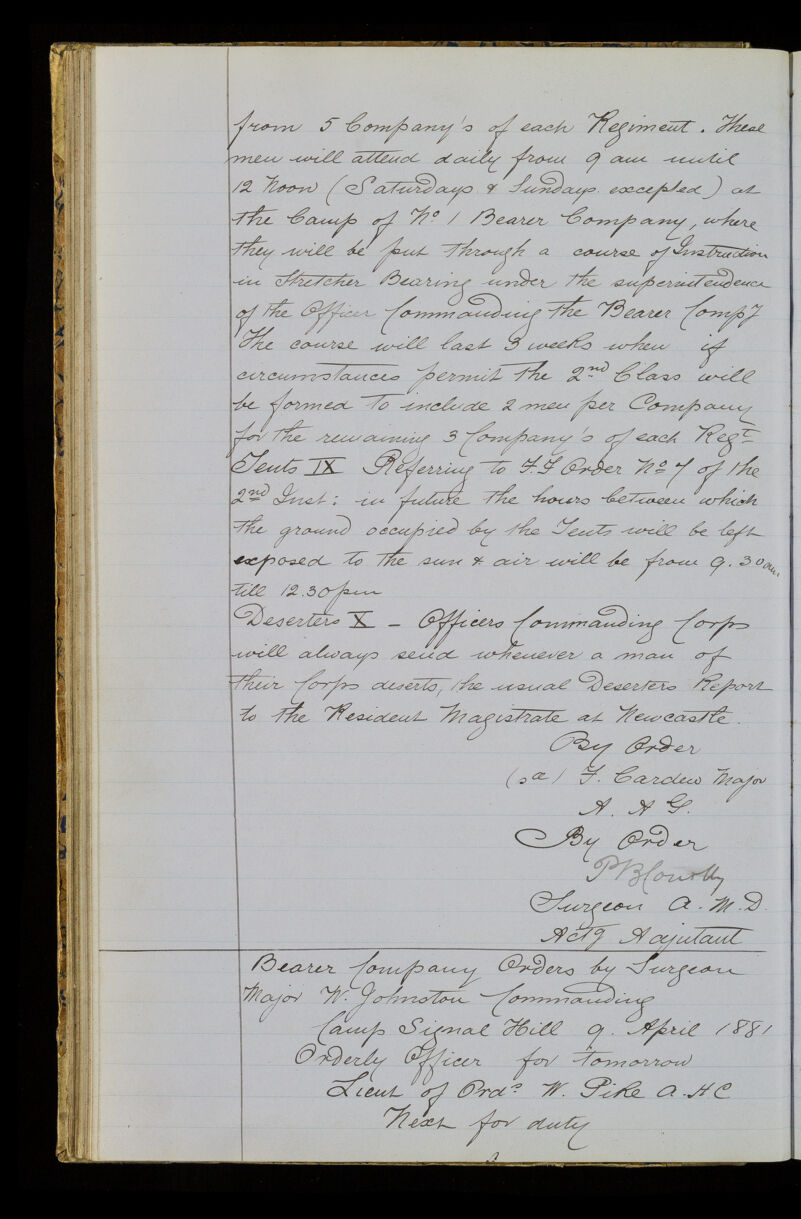 from 5 Company's of each Regiment. These
men will attend daily from 9 am until
12 Noon (Saturdays & Sundays excepted) at
the Camp of No 1 Bearer Company, where
they will be put through a course of Instruction
in Stretcher Bearing under the superintendence
of the Officer Commanding the Bearer Compy
The course will last 3 weeks when if
circumstances permit the 2nd Class will
be formed to include 2 men per Company
for the remaining 3 Company's of each Regt
Tents IX Referring to F.F Order No 7 of the
2nd Inst: in future the hours between which
the ground occupied by the Tents will be left
exposed to the sun & air will be from 9.30 am
till 12.30 pm
Deserters X – Officers Commanding Corps
will always send whenever a man of
their Corps deserts, the usual Deserters Report
to the Resident Magistrate at Newcastle.
By Order
(sd) F. Cardew Major
A. A G.
By Order
PB Conolly
Surgeon A. M. D.
Actg Adjutant
Bearer Company Orders by Surgeon
Major W. Johnston Commanding
Camp Signal Hill 9. April 1881
Orderly Officer for tomorrow
Lieut of Ords W. Pike A. H C
Next for duty